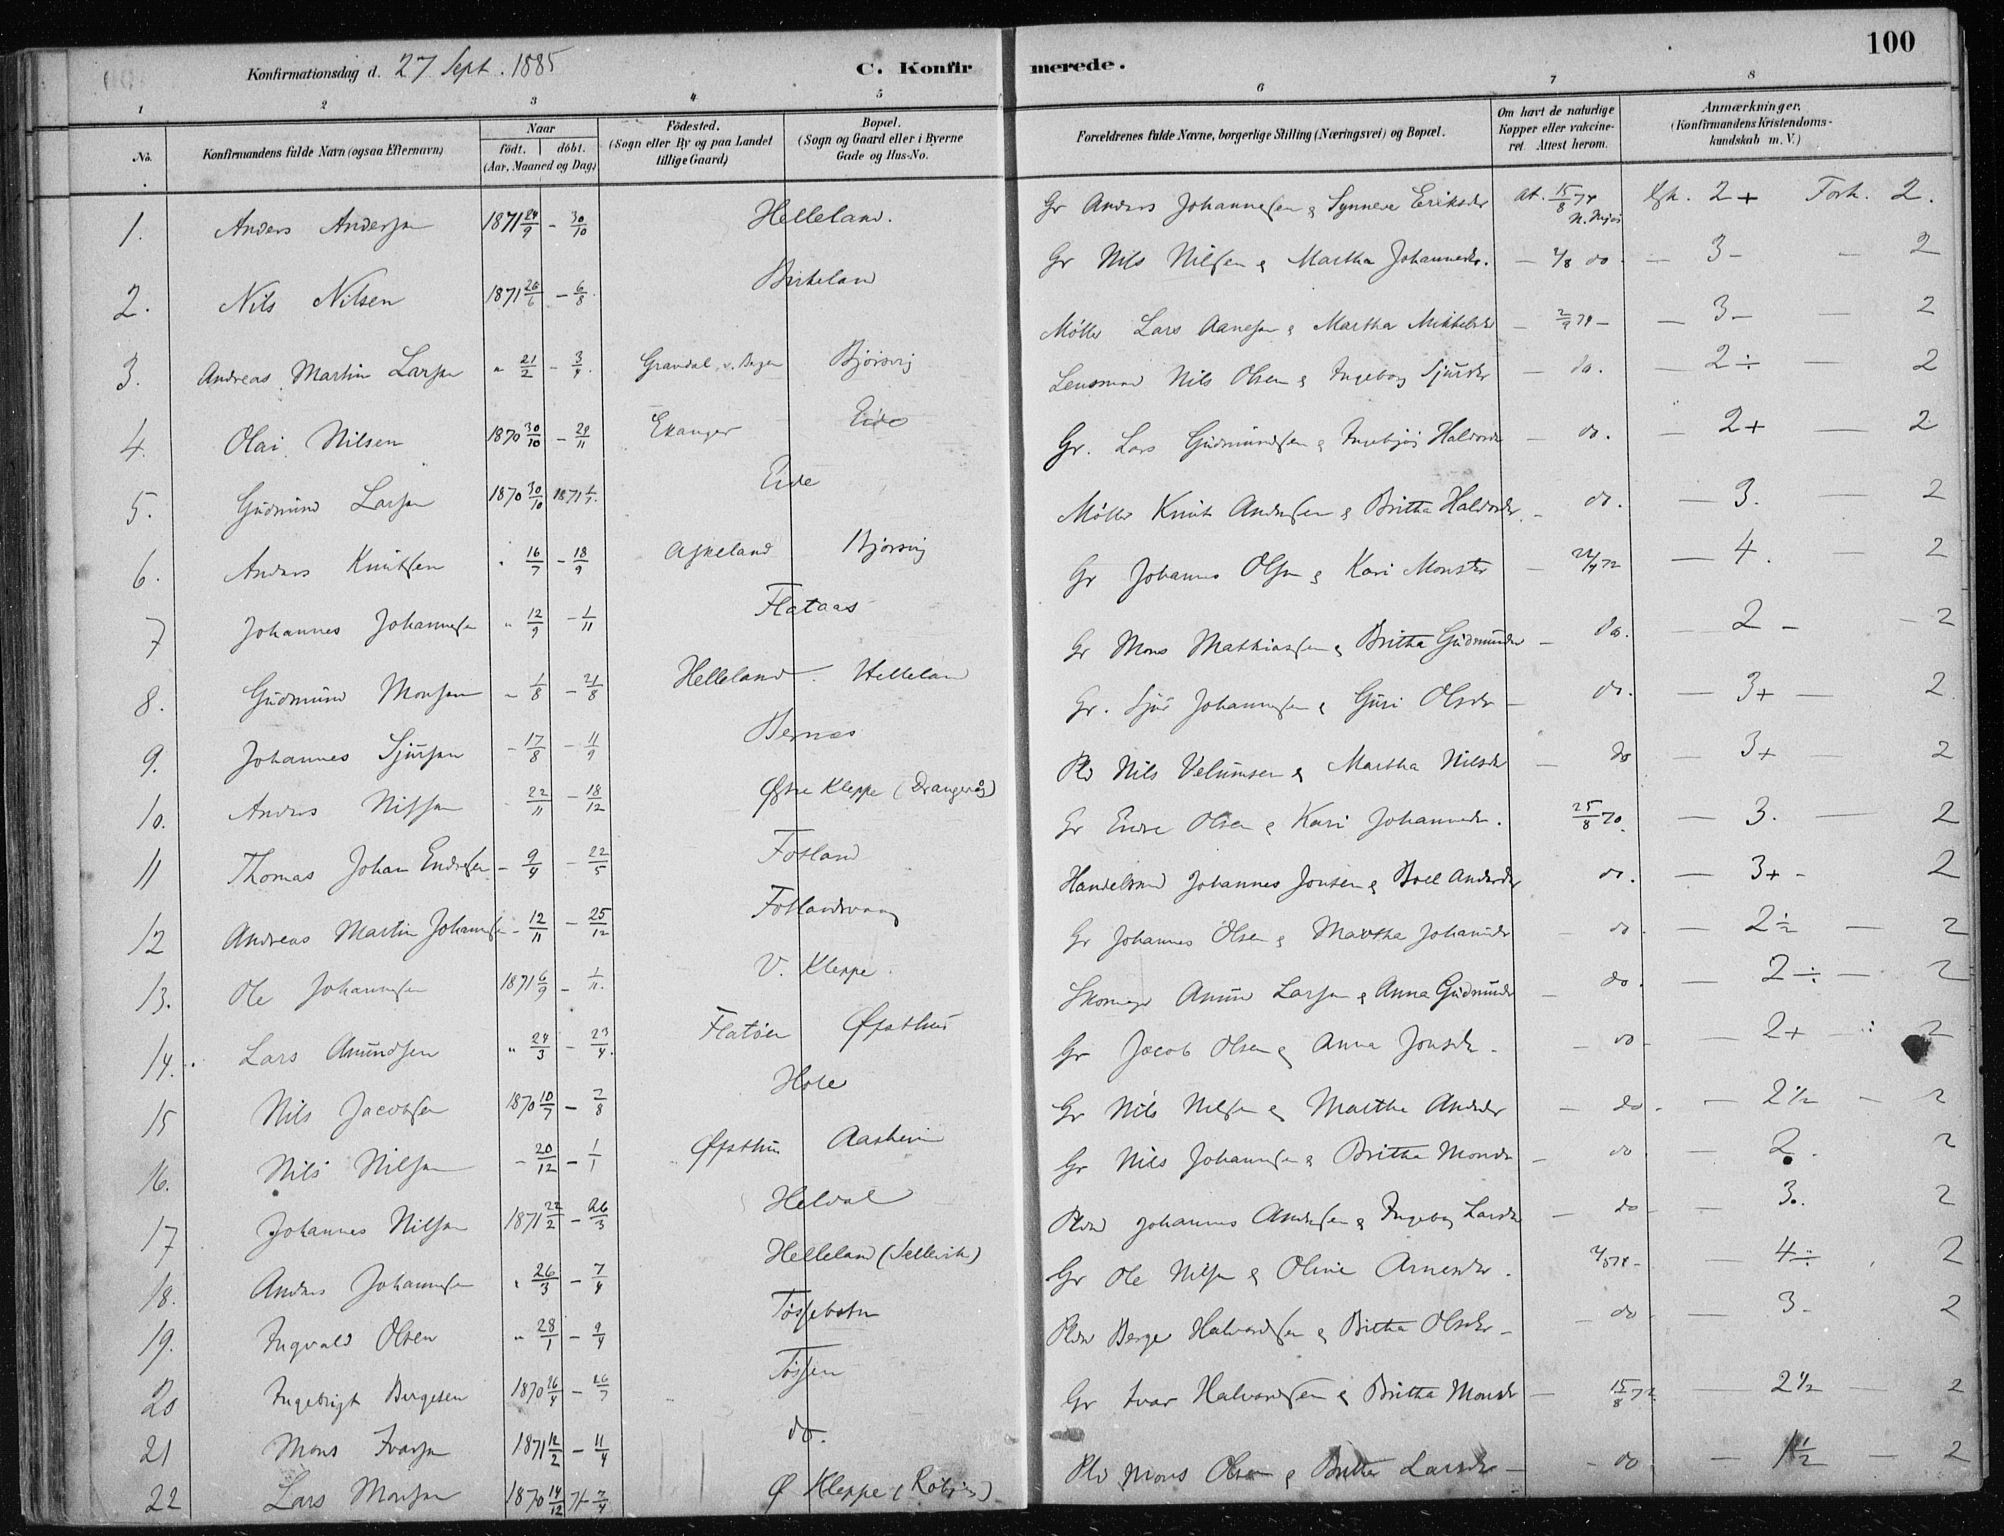 100
Konfirmationsdag d. 27 Sept. 1885 C. Konfirmerede.
1 2 3 4 5 6 7 8
No. Konfirmandens fulde Navn (ogsaa Efternavn) Naar födt. döbt. (Aar, Maaned og Dag) Födested. (Sogn eller By og paa Landet tillige Gaard) Bopæl. (Sogn og Gaard eller i Byerne Gade og Hus-No. Forældrenes fulde Navne, borgerlige Stilling (Næringsvei) og Bopæl. Om havt de naturlige Kopper eller vakcineret. Attest herom. Anmærkninger. (Konfirmandens Kristendomskundskab m. V.)
1. Anders Andersen 1871 24/9 - 30/10 Helleland. Gr Anders Johannessen & Synneve Eriksdr At. 15/8 74 2+ Forh. 2.
2. Nils Nilsen 1871 26/6 - 6/8 Birkeland Gr Nils Nilsen & Martha Johannesdr. - do - 3 - - 2
3. Andreas Martin Larsen " 21/2 - 3/4. Bjørsvig Møller Lars Aanesen & Martha Mikkelsdr - 3 - - 2
4. Olai Nilsen 1870 30/10 - 29/11 Ekanger Eide Lensmand Nils Olsen & Ingeborg Sjursdr - do. - 2 ÷ - 2
5. Gudmund Larsen 1870 30/10 1871 Eide Gr. Lars Gudmundsen & Ingebjør Haldorsdr - do. - 2+ - 2
6. Anders Knutsen " 16/7 - 18/9 Askeland Bjørsvig Møller Knut Andersen & Britha Haldorsdr. - do. - 3. - 2
7 Johannes Johannesen " 12/9 - 1/11 Flataas Gr Johannes Olsen & Kari Monsdr - - 4. - 2
8. Gudmund Monsen - 1/8 - 21/8 Helleland. Helleland Gr Mons Mathiassen & Britha Gudmundsdr - do. - 2 - - 2
9. Johannes Sjursen - 17/8 - 11/9 Bernes Gr. Sjur Johannessen & Guri Olsdr - do. - 3+ - 2
10. Anders Nilssen 22/11 - 18/12 Østre Kleppe (Drangevåg) Pld Nils Velumsen & Martha Nilsdr - do - 3+ - 2
11 Thomas Johan Endresen - 9/4 - 22/5 Fotland Gr Endre Olsen & Kari Johannesdr. 25/8 70. - 3. - 2
12 Andreas Martin Johannesen - 12/11 - 25/12 Fotlandsvaag Handelsmd Johannes Jonsen & Boel Andersdr do. - 3+ - 2
13. Ole Johannesen 1871 6/9 - 1/11. V. Kleppe. Gr Johannes Olsen & Martha Johannesdr - do - 2 ÷ - 2
14. Lars Amundsen " 24/3 - 23/4. Flatøen Øfsthus Skomager Amund Larsen & Anna Gudmundsdr - do. - 2 ÷ - 2
15 Nils Jacobsen 1870 10/7 - 7/8 Hole Gr Jacob Olsen & Anna Jonsdr - - do - - 2+ - 2
16. Nils Nilsen - 20/12 - 1/1 Øfsthus Aasheim Gr Nils Nilsen & Martha Andersdr - do - - 2 1/2 - 2
17 Johannes Nilsen 1871 22/2 - 26/3 Heldal Gr Nils Johannesen & Britha Monsdr - do - 2. 2
18. Anders Johannesen " 26/3 - 7/4 Helleland (Sellevik) Pldm Johannes Andersen & Ingeborg Larsdr - do - 3. 2
19. Ingvald Olsen " 28/1 - 9/4 Tøssebotn Gr Ole Nilsen & Oline Arnesdr. - 4 ÷ 2
20 Ingebrigt Bergesen 1870 26/4 - 26/7 Tøssen Pldm Berge Halvardsen & Britha Olsdr - - do - - 3 - 2
21 Mons Ivarsen 1871 12/2 - 11/4 do. Gr Ivar Halvardsen & Britha Monsdr - 15/8 72 - 2 1/2 - 2
22 Lars Monsen 1870 14/12 71 - 7/4 Ø Kleppe Pld Mons Olsen & Britha Larsdr - - do - - 1 1/2 - 2